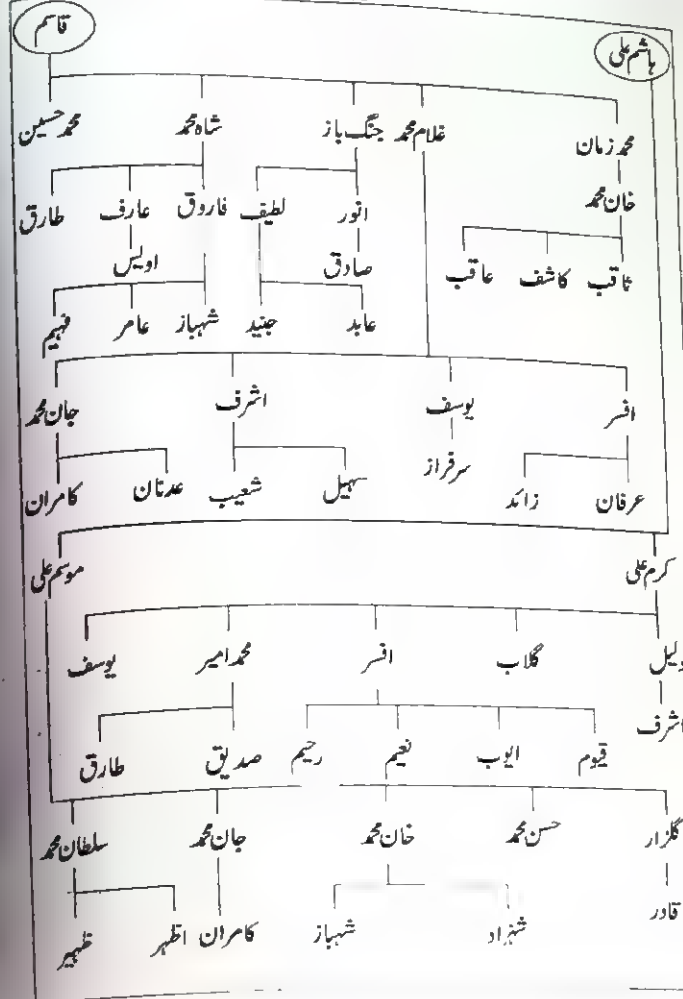 قاسم
ہاشم علی
محمد زمان غلام محمد جنگ باز شاہ محمد محمد حسین
خان محمد
انور لطیف فاروق عارف طارق
ثاقب کاشف عاقب
صادق اویس
عابد جنید شہباز عامر فہیم
افسر یوسف اشرف جان محمد
عرفان زائد سرفراز سہیل شعیب عدنان کامران
کرم علی موسم علی
دلیل گلاب افسر محمد امیر یوسف
اشرف
قیوم ایوب نعیم رحیم صدیق طارق
گلزار حسن محمد خان محمد جان محمد سلطان محمد
قادر شہزاد شہباز کامران اظہر ظہیر